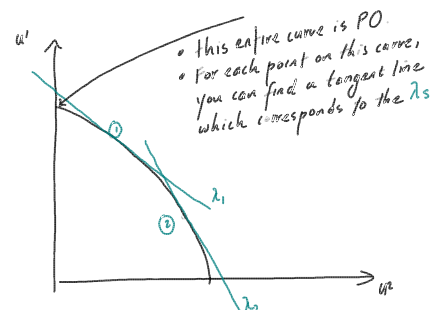 u¹
• this entire curve is PO.
• For each point on this curve,
you can find a tangent line
which corresponds to the λs
①
②
λ₁
u²
λ₂